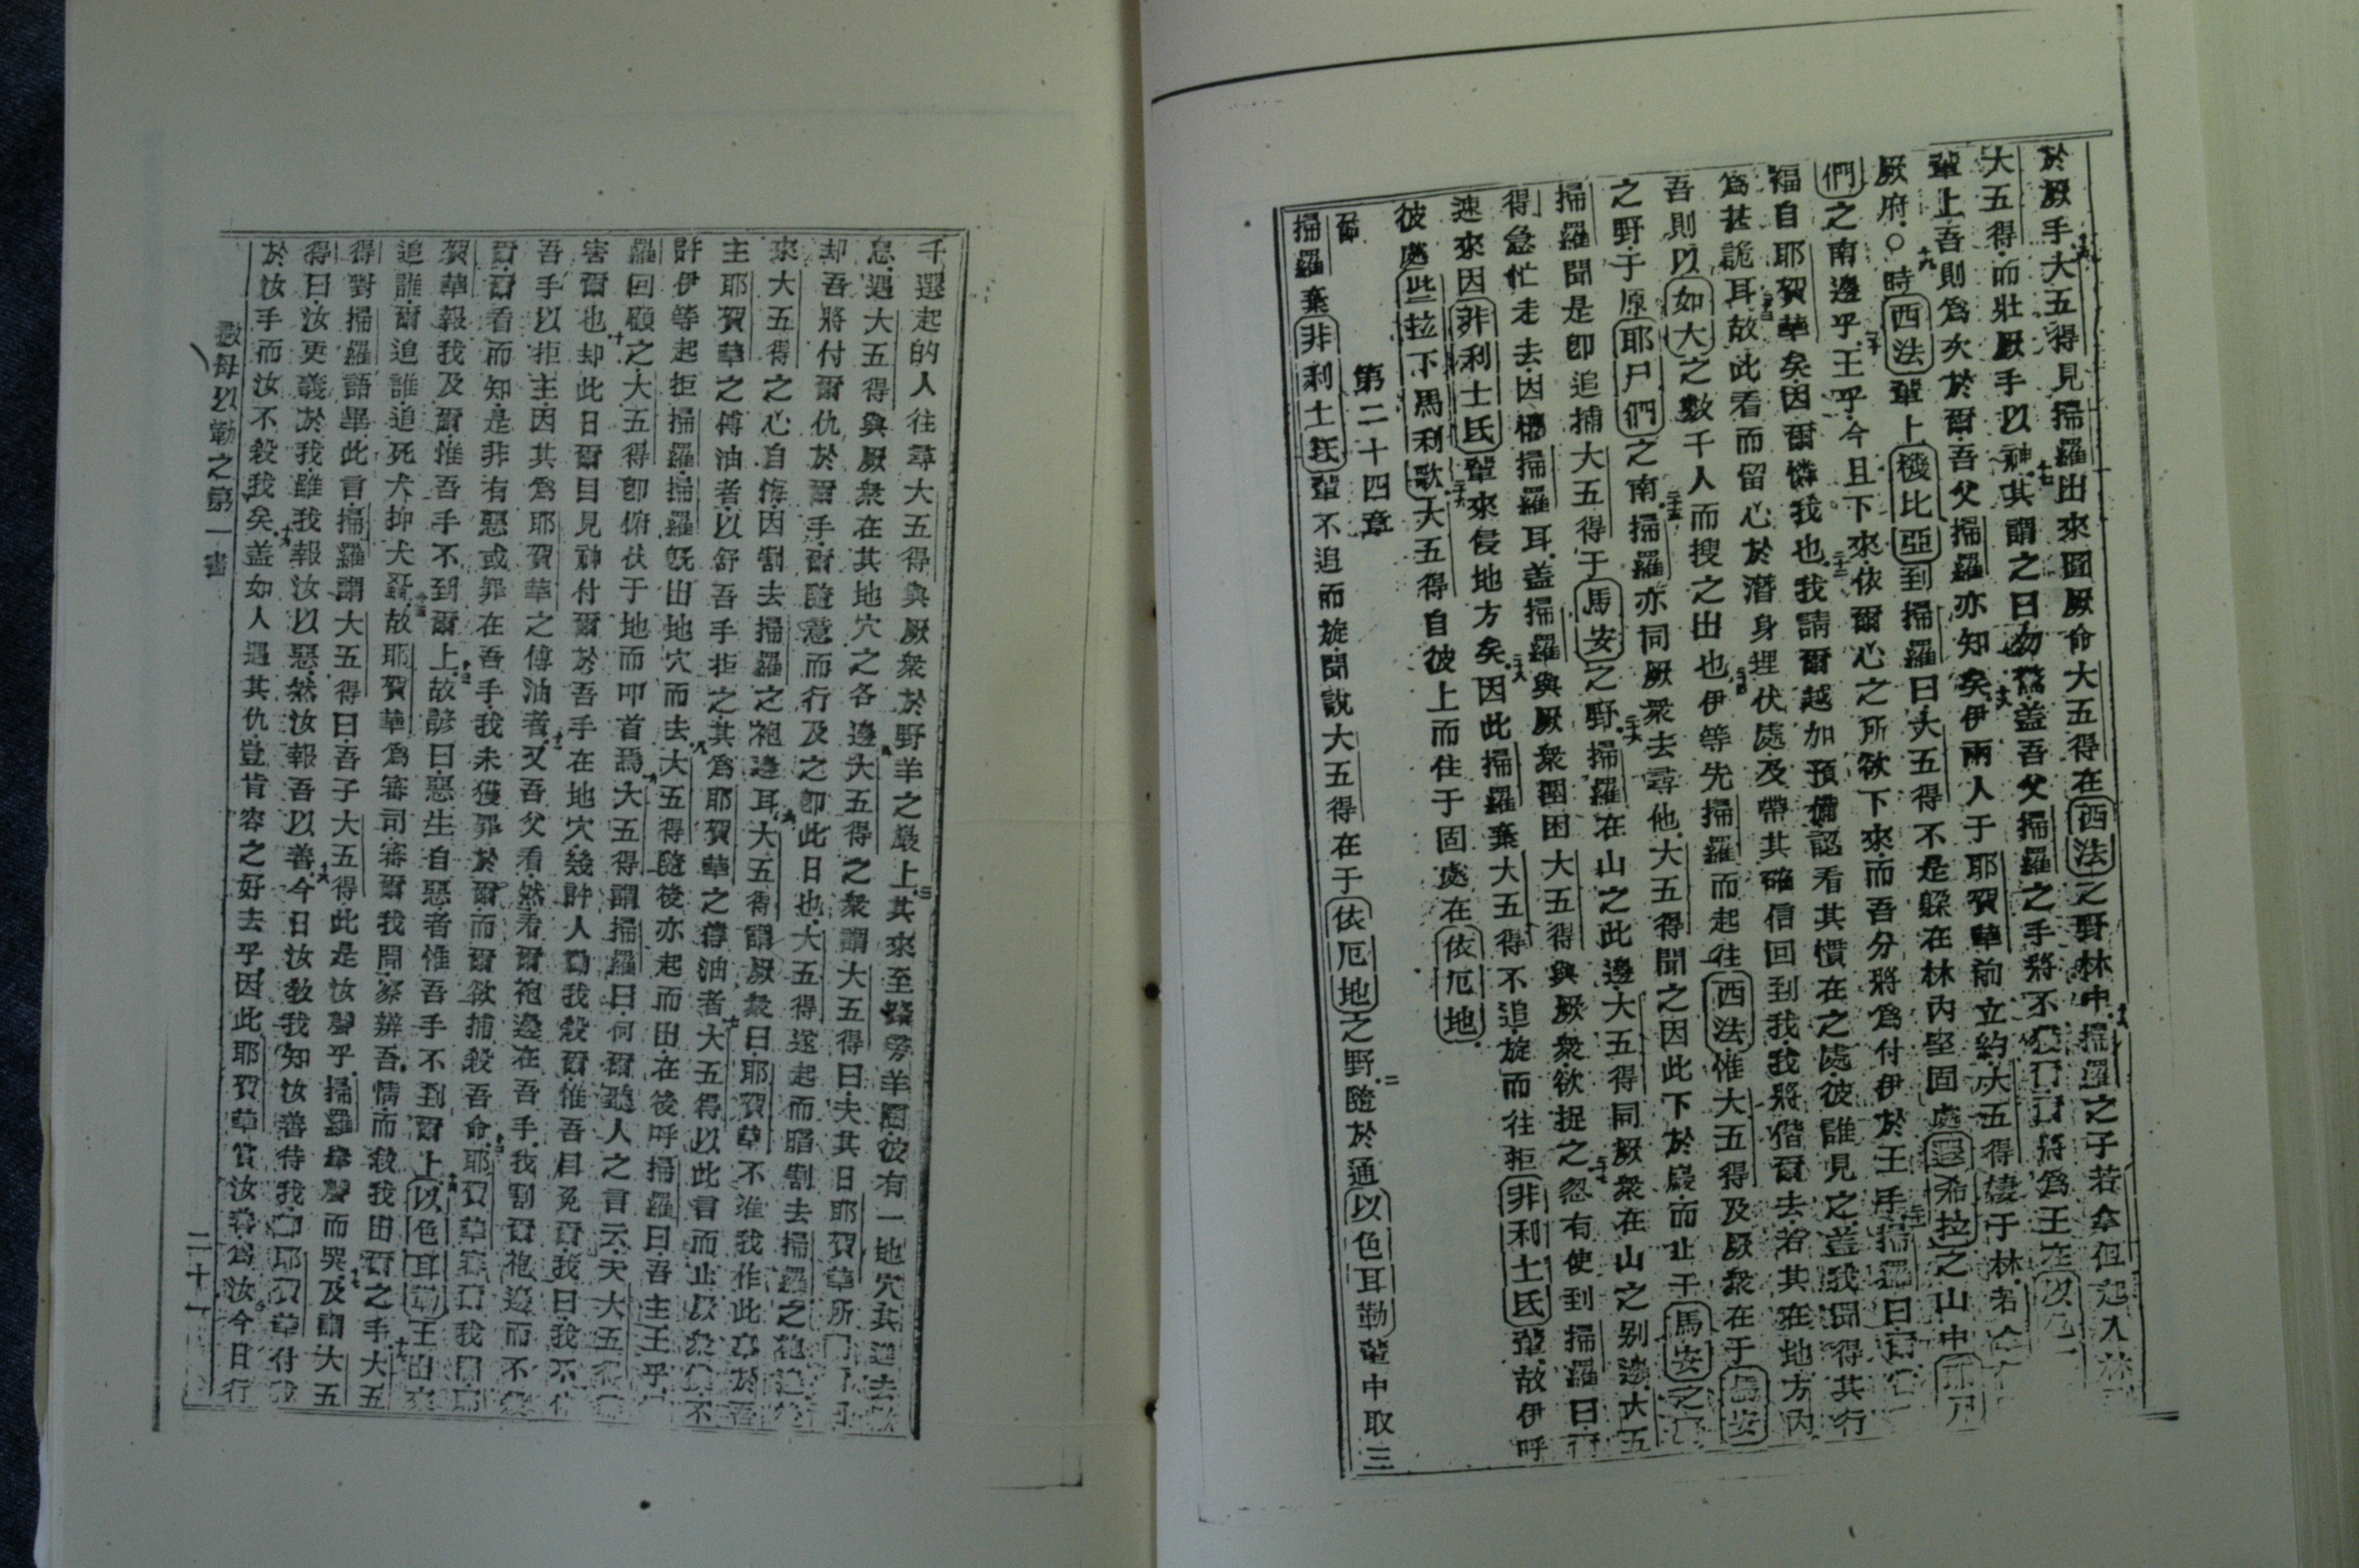 於厥手大五得見掃羅出來圖厥命大五得在西法之野林中掃羅之子若拿但起入林
大五得而壯厥手以神其謂之曰勿慌盖吾父掃羅之手將不爾爾將爲王在以色
輩上吾則爲次於爾吾父掃羅亦知矣伊兩人于耶賀華前立約大五得棲于林若
厥府○時西法輩上機比亞到掃羅曰大五得不是躲在林內堅固處遐希拉之山中耶尸
們之南邊乎王乎今且下來依爾心之所欲下來而吾分將爲付伊於王手掃羅曰爾
福自耶賀華矣因爾憐我也我請爾越加預備認看其慣在之處彼誰見之盖我聞得其行
爲甚詭耳故此看而留心於潛身埋伏處及帶其確信回到我我將偕爾去若其在地方內
吾則以如大之數千人而搜之出也伊等先掃羅而起往西法惟大五得及厥衆在于馬安
之野于原耶尸們之南掃羅亦同厥衆去尋他大五得聞之因此下於巖而止于馬安之
掃羅聞是卽追捕大五得于馬安之野掃羅在山之此邊大五得同厥衆在山之別邊大五
得急忙走去因懼掃羅耳盖掃羅與厥衆圍困大五得與厥衆欲捉之忽有使到掃羅曰
速來因非利士氏輩來侵地方矣因此掃羅棄大五得不追旋而往拒非利士氏輩故伊呼
彼處些拉不馬利歌大五得自彼上而住于固處在依厄地
第二十四章
節掃羅棄非利士氏輩不追而旋聞說大五得在于依厄地之野隨於通以色耳勒輩中取三
千選起的人往尋大五得與厥衆於野羊之巖上其來至路旁羊圈彼有一地穴其進去
息遇大五得與厥衆在其地穴之各邊大五得之衆謂大五得曰夫其日耶賀華所
却吾將付爾仇於爾手爾隨意而行及之卽此日也大五得遂起而暗割去掃羅之袍邊
來大五得之心自悔因割去掃羅之袍邊耳大五得謂厥衆曰耶賀華不准我作此事於吾
主耶賀華之傅油者以舒吾手拒之其爲耶賀華之傅油者大五得以此言而止厥衆不
許伊等起拒掃羅掃羅旣出地穴而去大五得隨後亦起而出在後呼掃羅曰吾主王乎
羅回顧之大五得卽俯伏于地而叩首焉大五得謂掃羅曰何爾聽人之言云夫大五得
害爾也却此日爾目見神付爾於吾手在地穴幾許人勸我殺爾惟吾目免爾我曰我不
吾手以拒主因其爲耶賀華之傅油者又吾父看然看爾袍邊在吾手我割爾袍邊而不
爾爾看而知是非有惡或罪在吾手我未獲罪於爾而爾欲捕殺吾命耶賀華審爾我間
賀華報我及爾惟吾手不到爾上故諺曰惡生自惡者惟吾手不到爾上以色耳勒王出
追誰爾追誰追死犬抑犬蚤故耶賀華爲審司審爾我間察辨吾情而救我出爾之手大五
得對掃羅語畢此言掃羅謂大五得曰吾子大五得此是汝聲乎掃羅舉聲而哭及謂大五
得曰汝更義於我雖我報汝以惡然汝報吾以善今日汝敎我知汝善待我卽耶賀華付我
於汝手而汝不殺我矣盖如人遇其仇豈肯容之好去乎因此耶賀華賞汝善爲汝今日行
撒母以勒之第一書
二十一